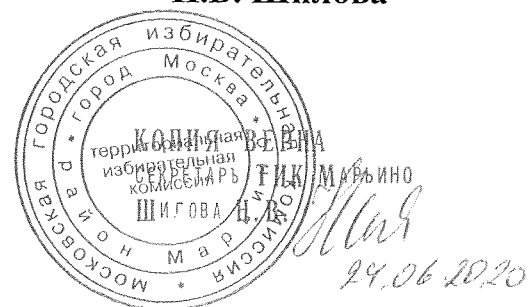 Н.В. Шилова
Московская городская избирательная комиссия *
* район Марьино * город Москва
территориальная
избирательная
комиссия
КОПИЯ ВЕРНА
СЕКРЕТАРЬ ТИК МАРЬИНО
ШИЛОВА Н.В.
24.06.2020